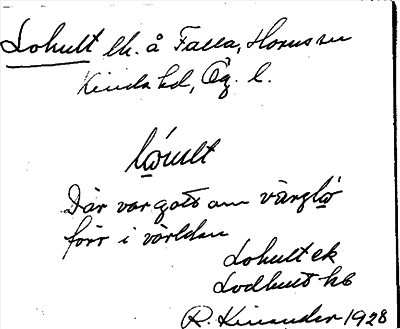 Lohult lk. å Falla, Horns sn
Kinda hd, Ög. l.
Där var gott om värglo
förr i världen
Lohult ek
Lodhult hb
R. Kinander 1928